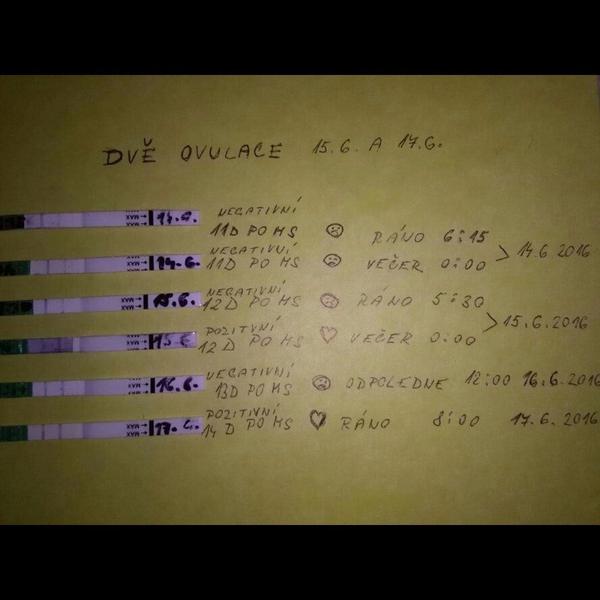 DVĚ OVULACE 15.6. A 17.6.
MAX 14.6. NEGATIVNÍ
11D PO MS RÁNO 6:15
NEGATIVNÍ
MAX 14.6. 11D PO MS VEČER 0:00 14.6.2016
NEGATIVNÍ
MAX 15.6. 12D PO MS RÁNO 5:30
15.6.2016
POZITIVNÍ
MAX 15.6. 12D PO MS VEČER 0:00
NEGATIVNÍ
MAX 16.6. 13D PO MS ODPOLEDNE 12:00 16.6.2016
POZITIVNÍ
MAX 17.6. 14D PO MS RÁNO 8:00 17.6.2016